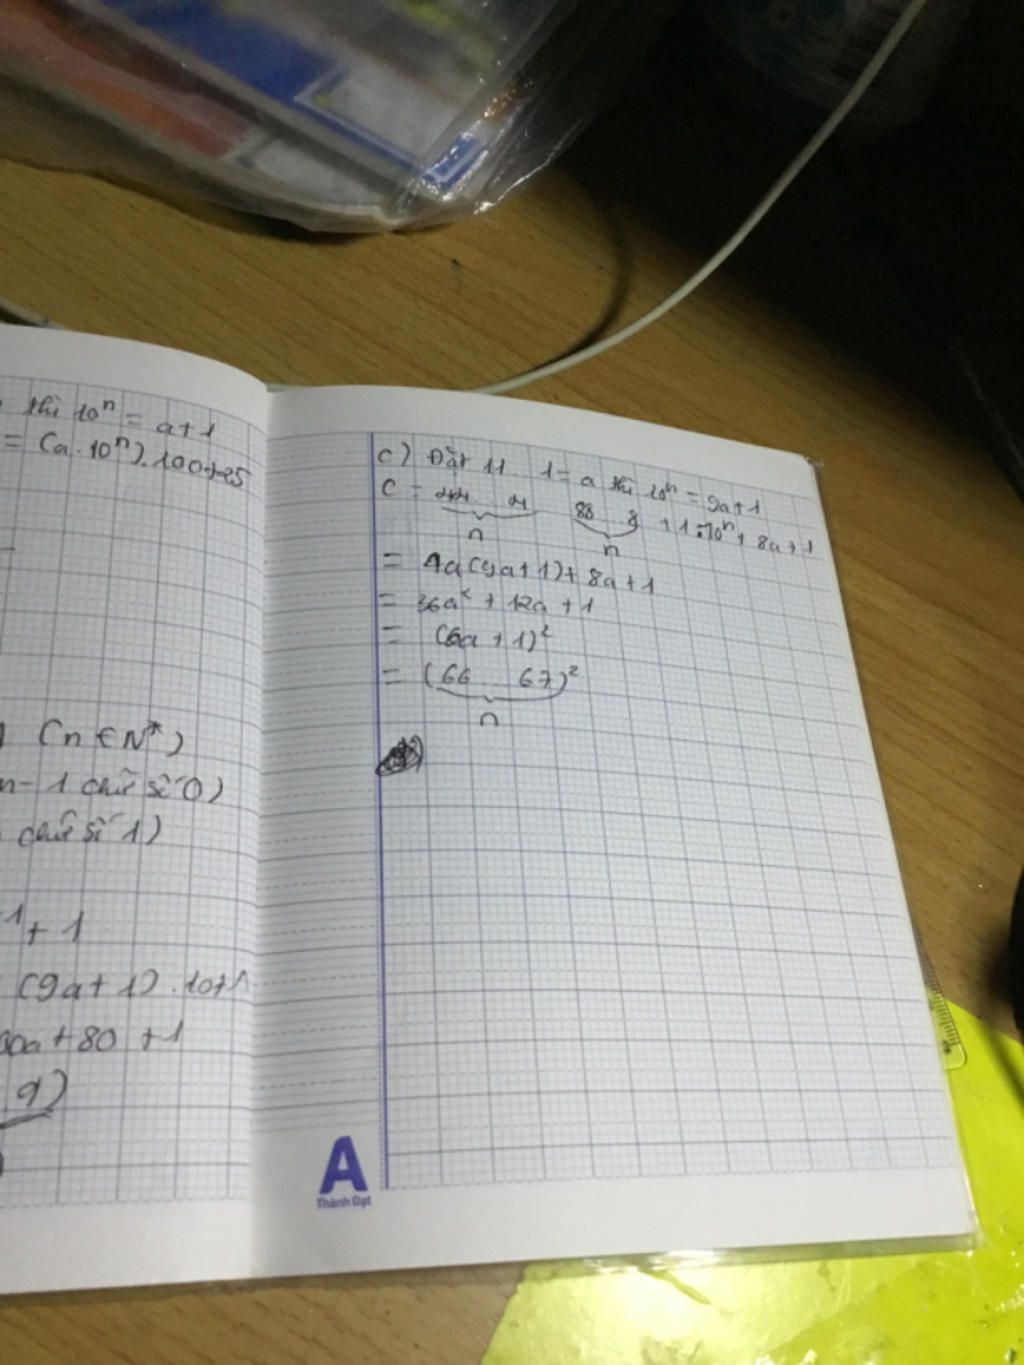 thì 10ⁿ = a+1
= (a.10ⁿ).100+25
(n ∈ N*)
n-1 chữ số 0)
chữ số 1)
+ 1
(9a+1).10+1
00a+80 +1
9)
c) Đặt 11...1 = a thì 10ⁿ = 9a+1
C = 44...4 88...8 + 1 .10ⁿ + 8a + 1
n n
= 4a(9a+1)+8a+1
= 36a² + 12a + 1
= (6a + 1)²
= (66...67)²
n
A
Thành Đạt